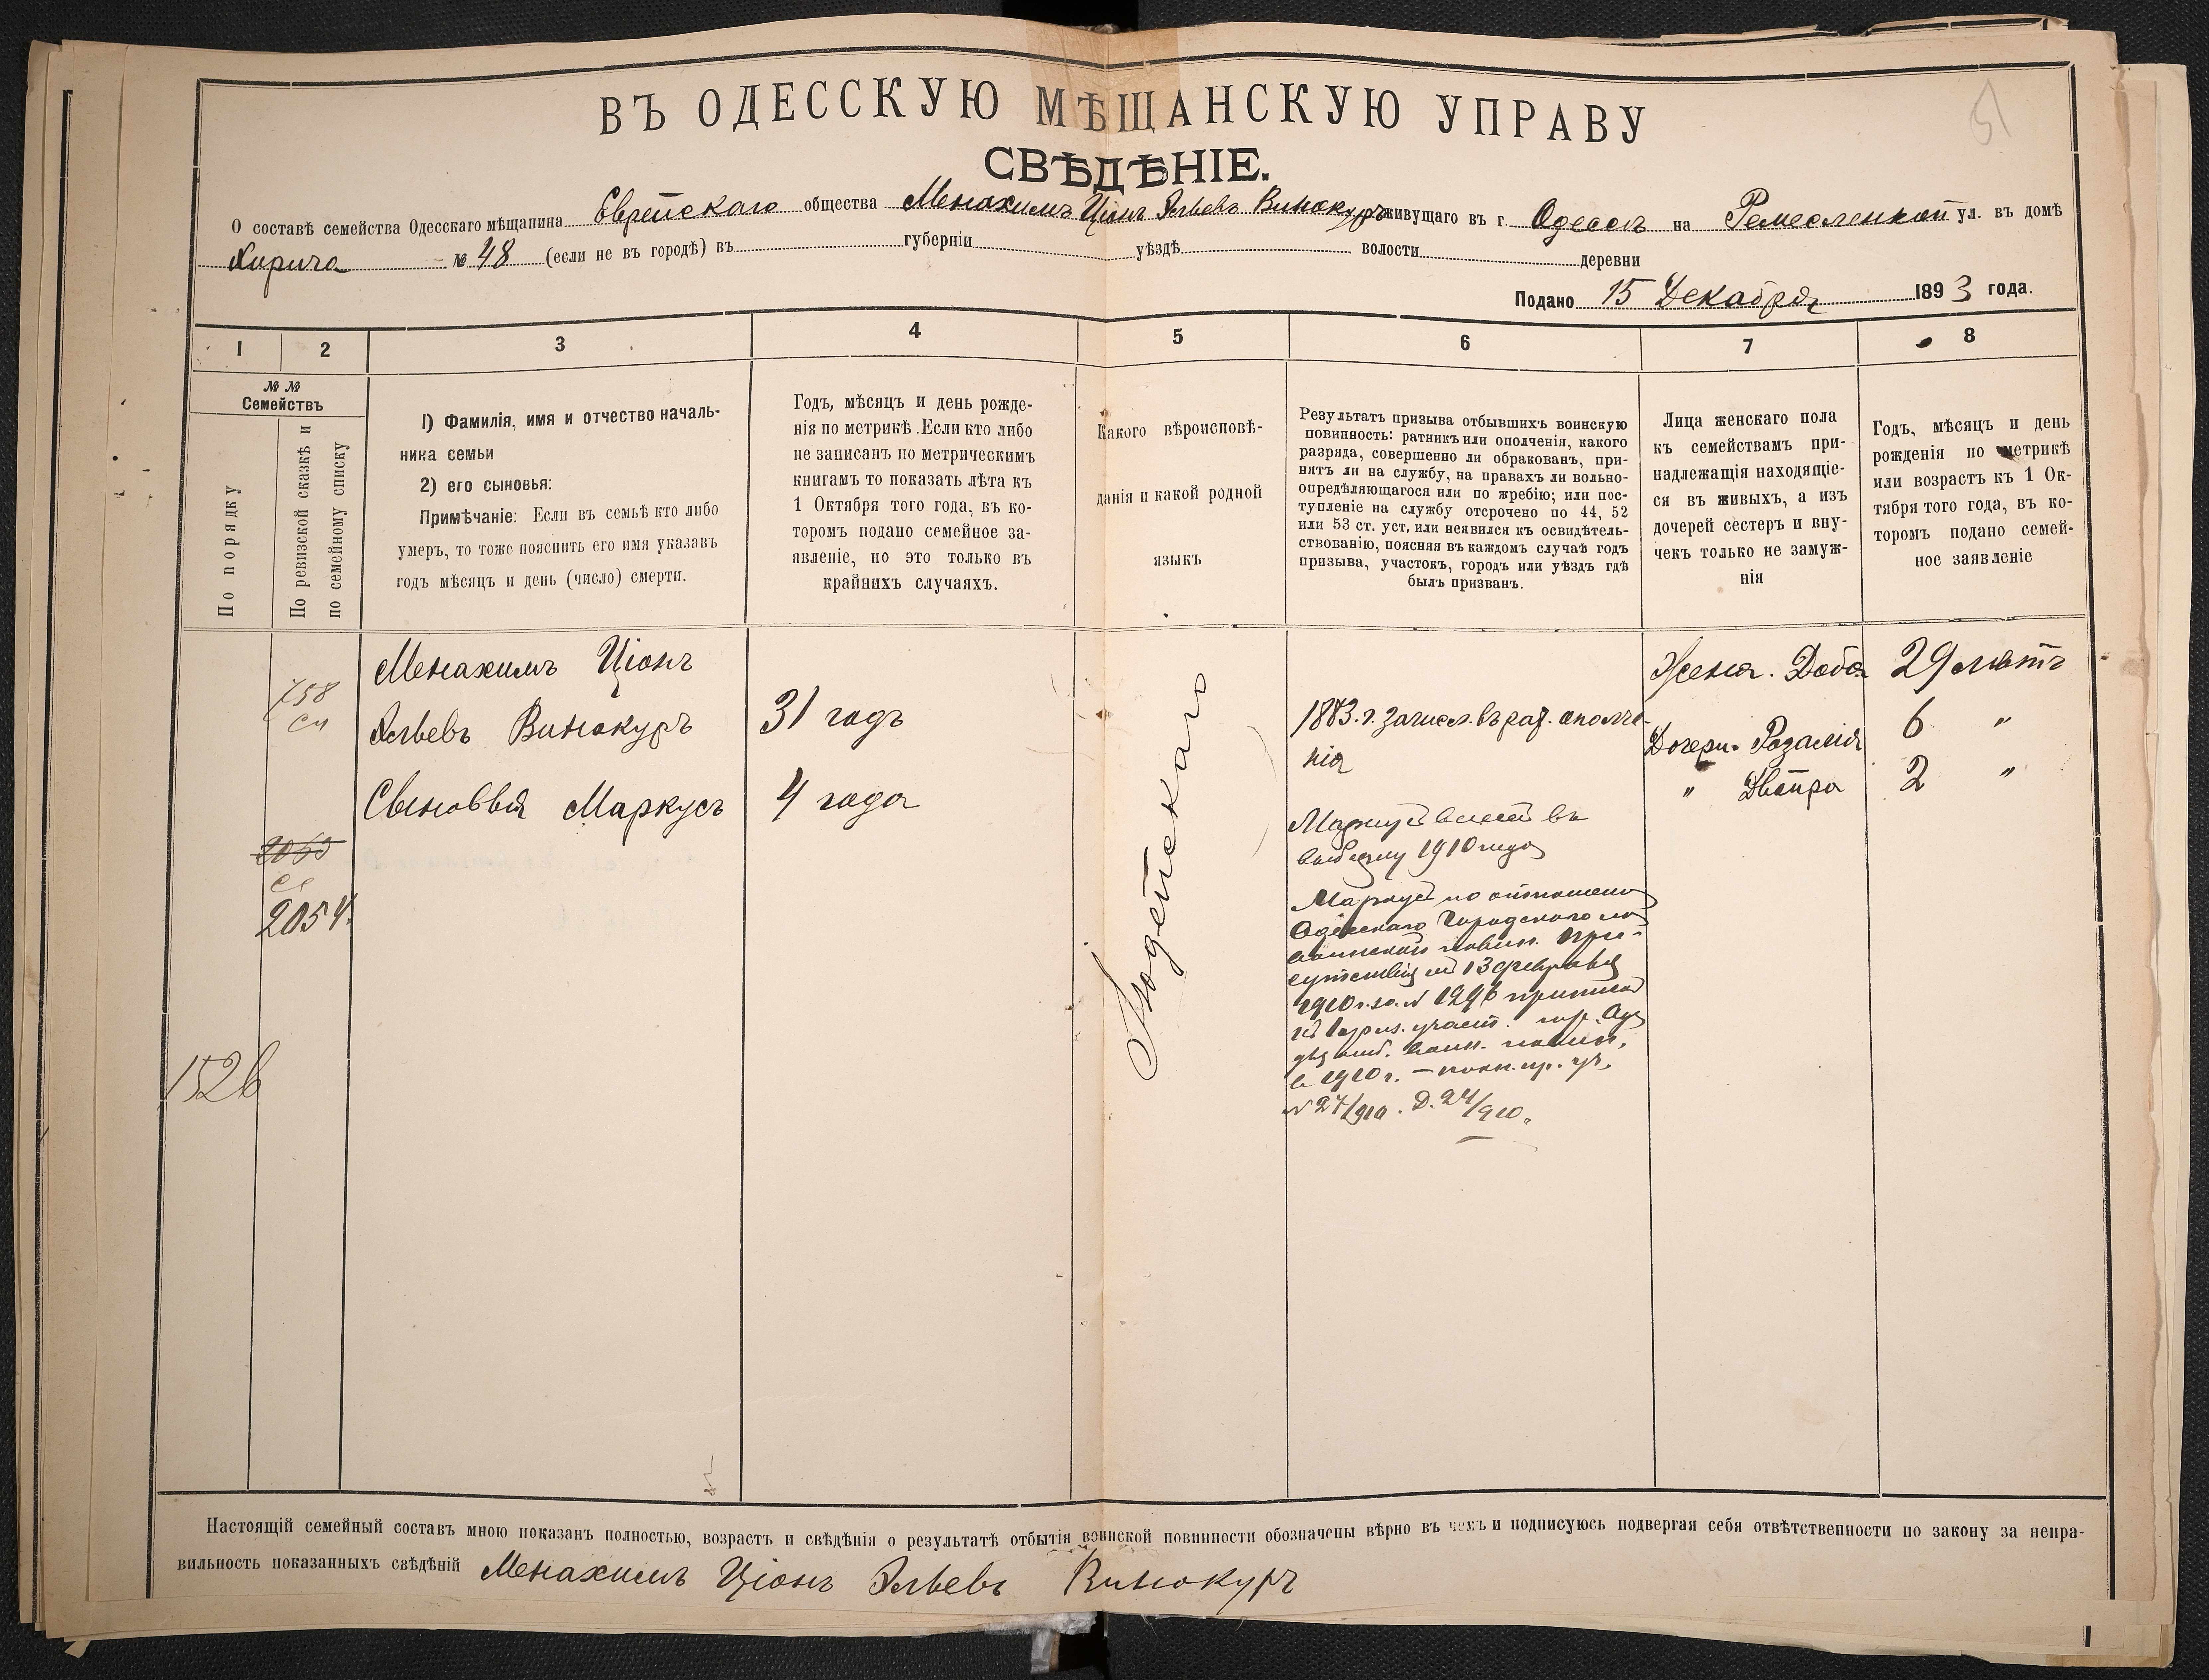 ВЪ ОДЕССКУЮ МѢЩАНСКУЮ УПРАВУ
СВѢДѢНІЕ.
О составѣ семейства Одесскаго мѣщанина Еврейскаго общества Менахимъ Ціонъ Эльевъ Винокуръ живущаго въ г. Одессѣ на Ремесленной ул. въ домѣ
№ 48 (если не въ городѣ) въ губерніи уѣздѣ волости деревни
Подано 15 Декабря 1893 года.
1 2 3 4 5 6 7 8
№ № Семействъ
По порядку
По ревизской сказкѣ и
по семейному списку
1) Фамилія, имя и отчество началь-
ника семьи
2) его сыновья:
Примѣчаніе: Если въ семьѣ кто либо
умеръ, то тоже пояснить его имя указавъ
годъ мѣсяцъ и день (число) смерти.
Годъ, мѣсяцъ и день рожде-
нія по метрикѣ. Если кто либо
не записанъ по метрическимъ
книгамъ то показать лѣта къ
1 Октября того года, въ ко-
торомъ подано семейное за-
явленіе, но это только въ
крайнихъ случаяхъ.
Какого вѣроисповѣ-
данія и какой родной
языкъ
Результатъ призыва отбывшихъ воинскую
повинность: ратникъ или ополченія, какого
разряда, совершенно ли обракованъ, при-
нятъ ли на службу, на правахъ ли вольно-
опредѣляющагося или по жребію; или пос-
тупленіе на службу отсрочено по 44, 52
или 53 ст. уст, или неявился къ освидѣтель-
ствованію, поясняя въ каждомъ случаѣ годъ
призыва, участокъ, городъ или уѣздъ гдѣ
былъ призванъ.
Лица женскаго пола
къ семействамъ при-
надлежащія находящіе-
ся въ живыхъ, а изъ
дочерей сестеръ и вну-
чекъ только не замуж-
нія
Годъ, мѣсяцъ и день
рожденія по метрикѣ
или возрастъ къ 1 Ок-
тября того года, въ ко-
торомъ подано семей-
ное заявленіе
758
Менахимъ Ціонъ
Эльевъ Винокуръ 31 годъ
Сыновья Маркусъ 4 года
2054.
1526
Іюдейскаго
1883. г. зачисл. въ рат. ополче-
нія
Маркусъ внесенъ въ
1910 года
Маркусъ по отношению
Одесскаго Городского по
воинской повин. При-
сутствія отъ 13 февраля
1910 г. за № 1296 приписанъ
участ. гор. Оде
для отб. воин. повин.
в 1910 г.
№ 24/910. Д. 24/910.
Жена. Доба 29 лѣтъ
Дочери. Розалія 6 "
" Двейра 2 "
Настоящій семейный составъ мною показанъ полностью, возрастъ и свѣдѣнія о результатѣ отбытія воинской повинности обозначены вѣрно въ чемъ и подписуюсь подвергая себя отвѣтственности по закону за непра-
вильность показанныхъ свѣдѣній Менахимъ Ціонъ Эльевъ Винокуръ